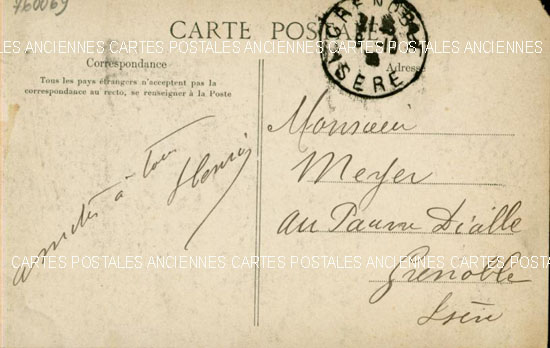 760069
CARTE POSTALE
GRENOBLE
ISÈRE
CARTES POSTALES ANCIENNES CARTES POSTALES ANCIENNES CARTES POSTALES ANCIENNES
Correspondance
Tous les pays étrangers n'acceptent pas la
correspondance au recto, se renseigner à la Poste
Adresse
amitiés à tous
Henri
Monsieur
Meyer
au Pauvre Diable
Grenoble
Isère
CARTES POSTALES ANCIENNES CARTES POSTALES ANCIENNES CARTES POSTALES ANCIENNES